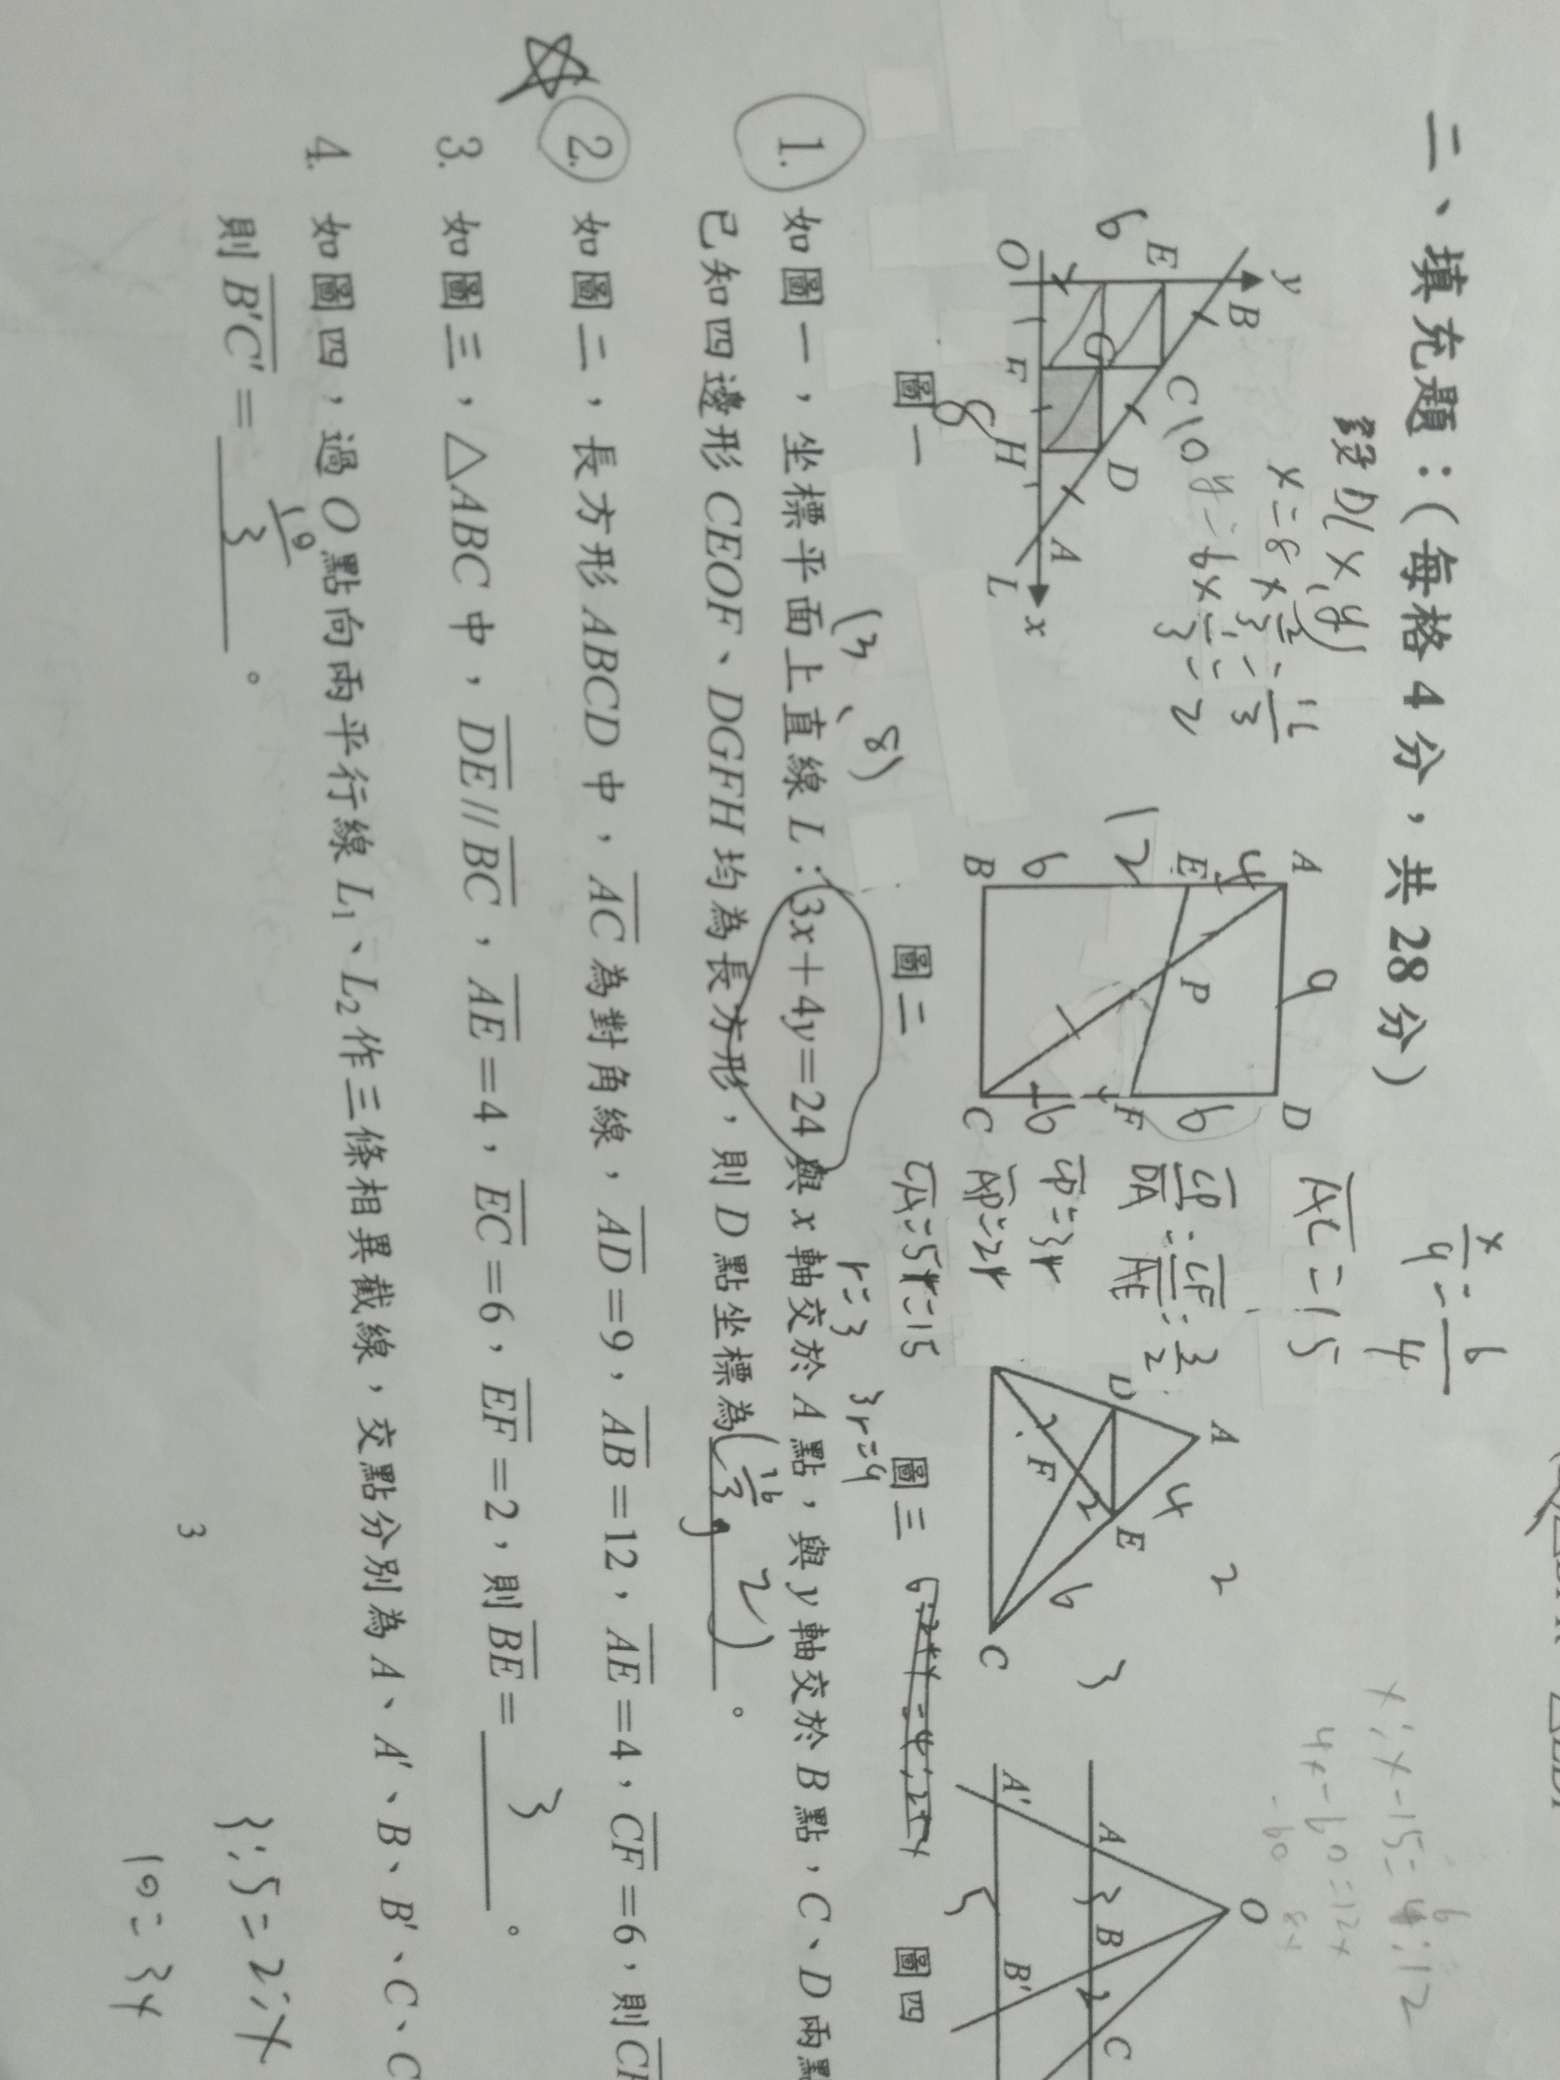 二、填充題：（每格 4 分，共 28 分）
設D(x,y)
x=8×2/3=16/3
y=6×1/3=2
10
y
B
E
C
6
G
D
O
F
H
A
x
L
8
圖一
A
9
D
4
E
P
12
6
F
6
B
6
C
圖二
x/9=6/4
AC=15
CP/DA=CF/AE=3/2
CP=3r
AP=2r
CA=5r=15
r=3
3r=9
A
4
D
E
2
F
2
6
C
2
3
圖三
x:x-15=6:12
4x-60=12x
-60 8x
O
A
3
B
2
C
A'
5
B'
圖四
(3、8)
1. 如圖一，坐標平面上直線 L：3x＋4y＝24 與 x 軸交於 A 點，與 y 軸交於 B 點，C、D 兩點
已知四邊形 CEOF、DGFH 均為長方形，則 D 點坐標為 (16/3, 2) 。
2. 如圖二，長方形 ABCD 中，AC 為對角線，AD＝9，AB＝12，AE＝4，CF＝6，則
3. 如圖三，△ABC 中，DE // BC，AE＝4，EC＝6，EF＝2，則 BE＝ 3 。
4. 如圖四，過 O 點向兩平行線 L1、L2 作三條相異截線，交點分別為 A、A'、B、B'、C、C
則 B'C'＝ 10/3 。
3:5=2:x
10=3x
3